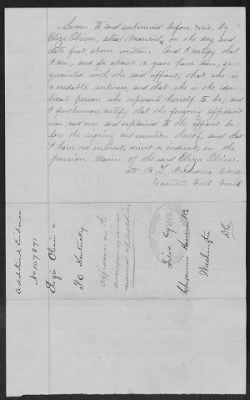 Sworn to and subscribed before me, by
Eliza Oliver, alias Maxwell, on the day and
date first above written. And I certify that
I am, and for above a year have been, ac-
quainted with the said affiant, that she is
a credible witness, and that she is the iden-
tical person she represents herself to be; and
I furthermore certify, that the foregoing affidavit
was read over and explained to the affiant be-
fore the signing and execution thereof, and that
I have no interest, direct or indirect, in the
pension claim of the said Eliza Oliver.
Clerk
Court
Additional Evidence
No 107871
Eliza Oliver
Kentucky
Affidavit as to
name of soldier
Filed by
Washington
D.C.